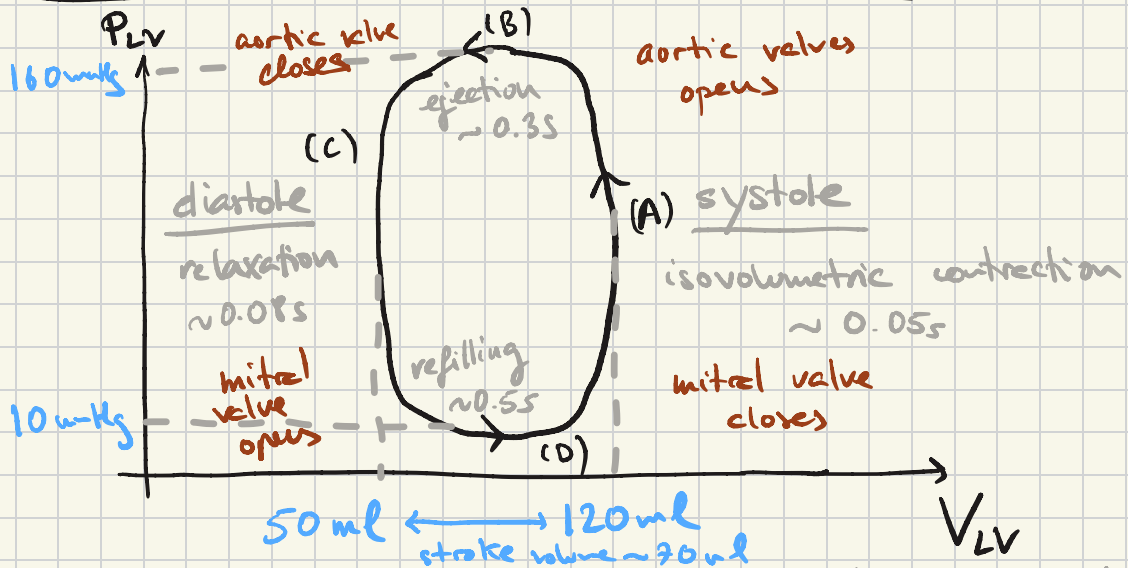 P_LV
(B)
aortic valve
closes
aortic valves
opens
160mmHg
ejection
~ 0.3s
(C)
diastole
relaxation
~0.08s
(A)
systole
isovolumetric contraction
~ 0.05s
mitral
valve
opens
refilling
~0.5s
mitral valve
closes
10mmHg
(D)
50ml
120ml
stroke volume ~70ml
V_LV